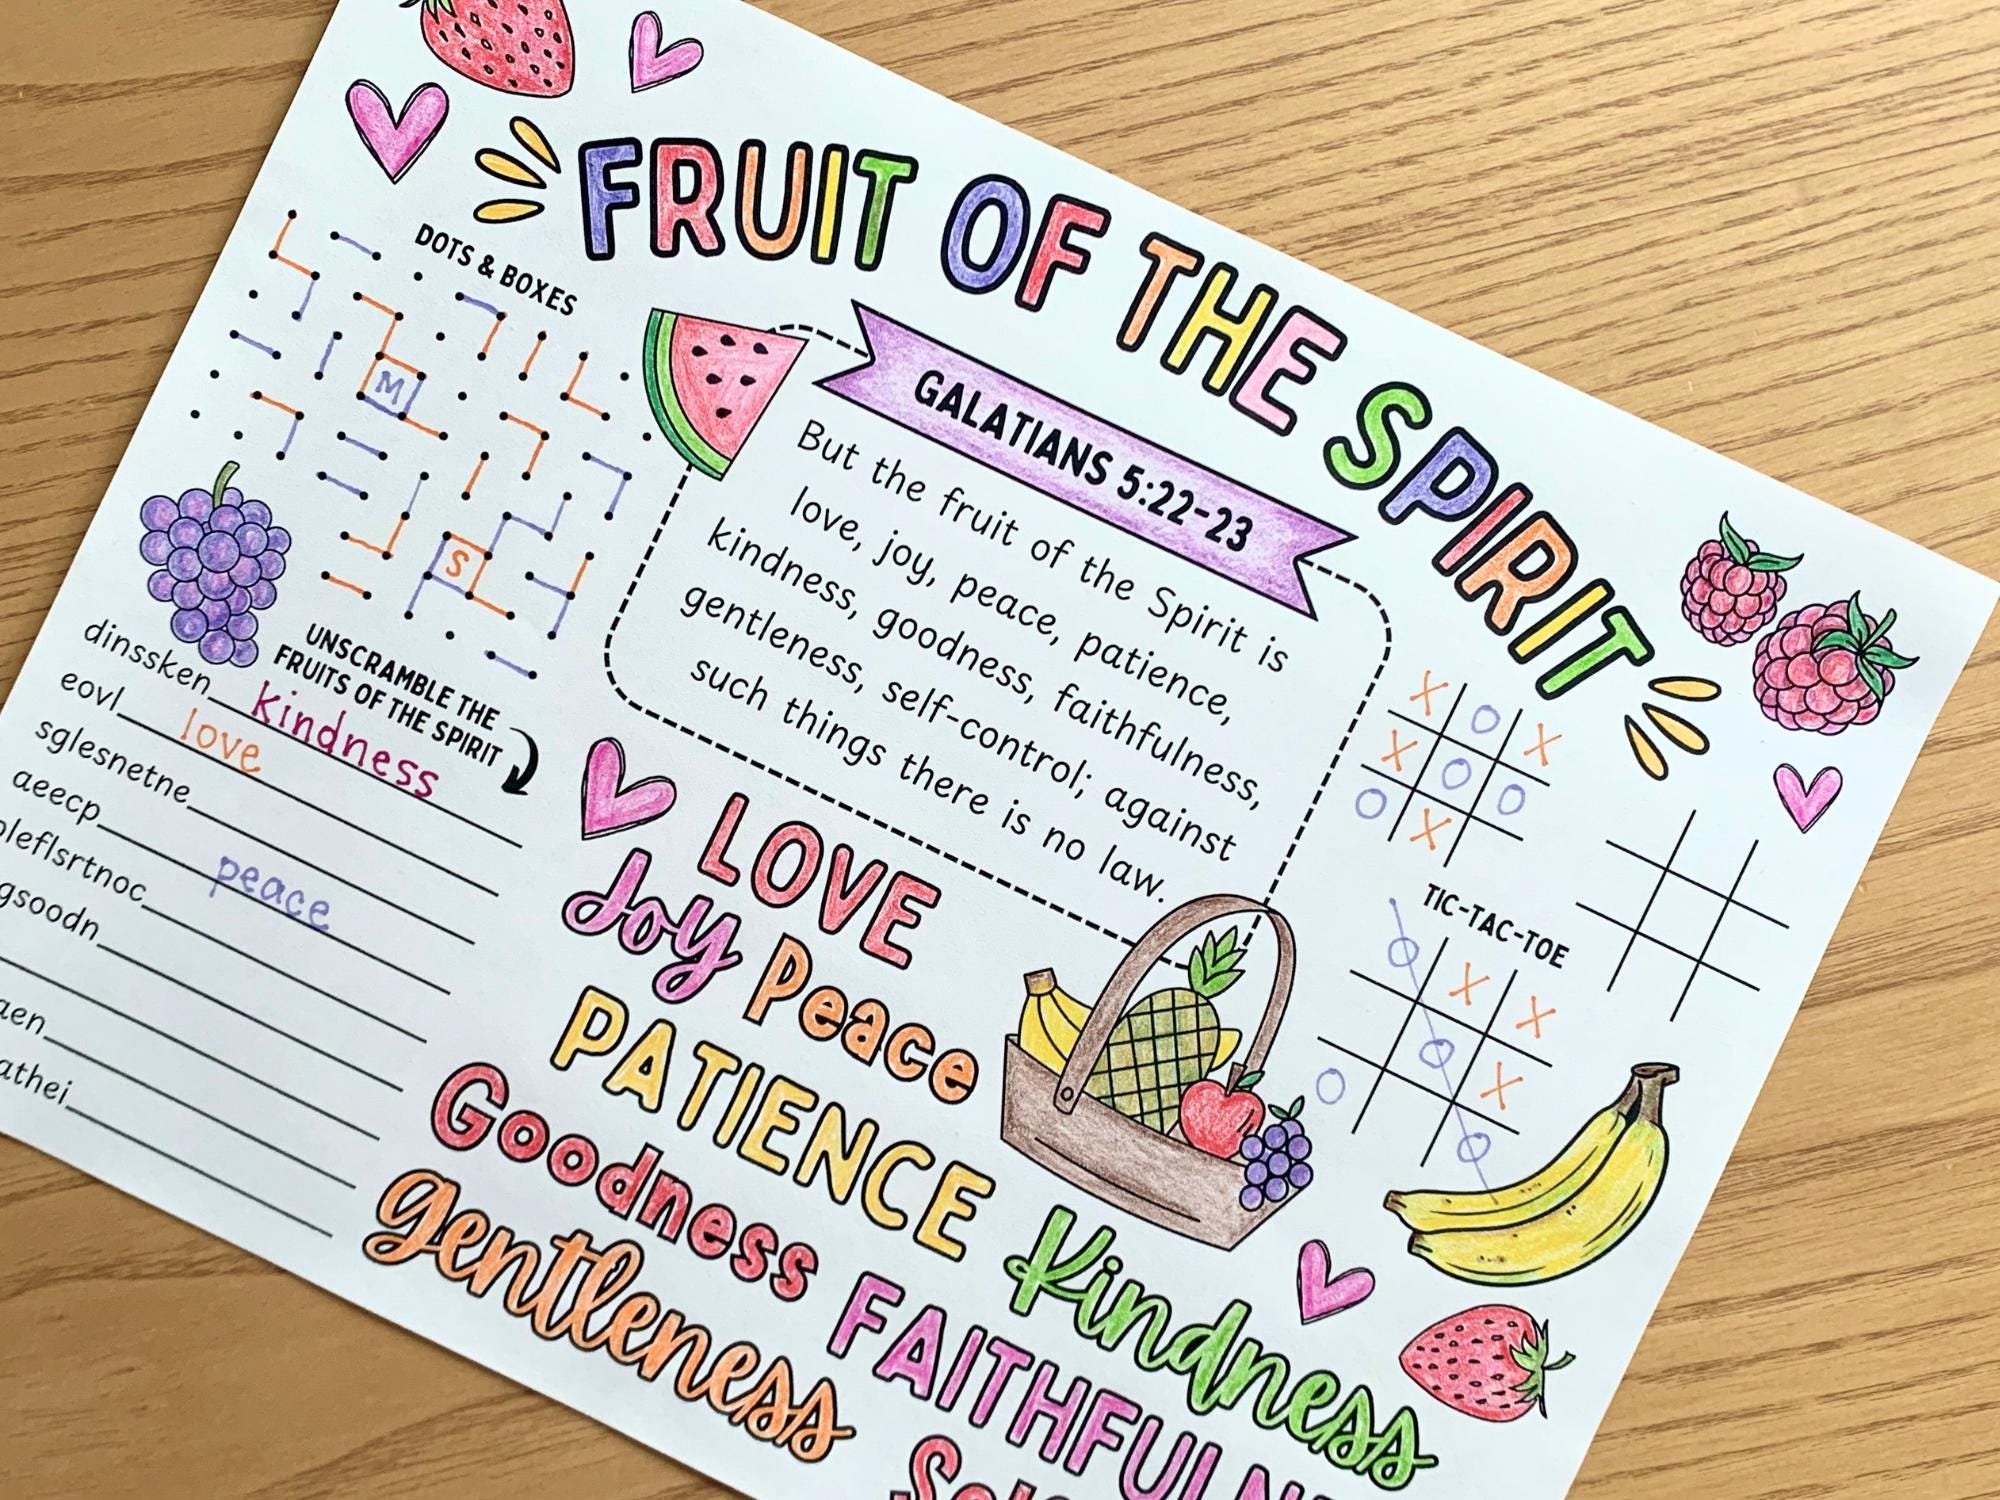 FRUIT OF THE SPIRIT
DOTS & BOXES
M
S
GALATIANS 5:22-23
But the fruit of the Spirit is
love, joy, peace, patience,
kindness, goodness, faithfulness,
gentleness, self-control; against
such things there is no law.
UNSCRAMBLE THE
FRUITS OF THE SPIRIT
dinssken kindness
eovl love
sglesnetne
aeecp peace
leflsrtnoc
gsoodn
aen
athei
LOVE
Joy Peace
PATIENCE
Goodness Kindness
gentleness FAITHFULN
Sel
X O X
X O O
O X
TIC-TAC-TOE
O X X
O X
O O